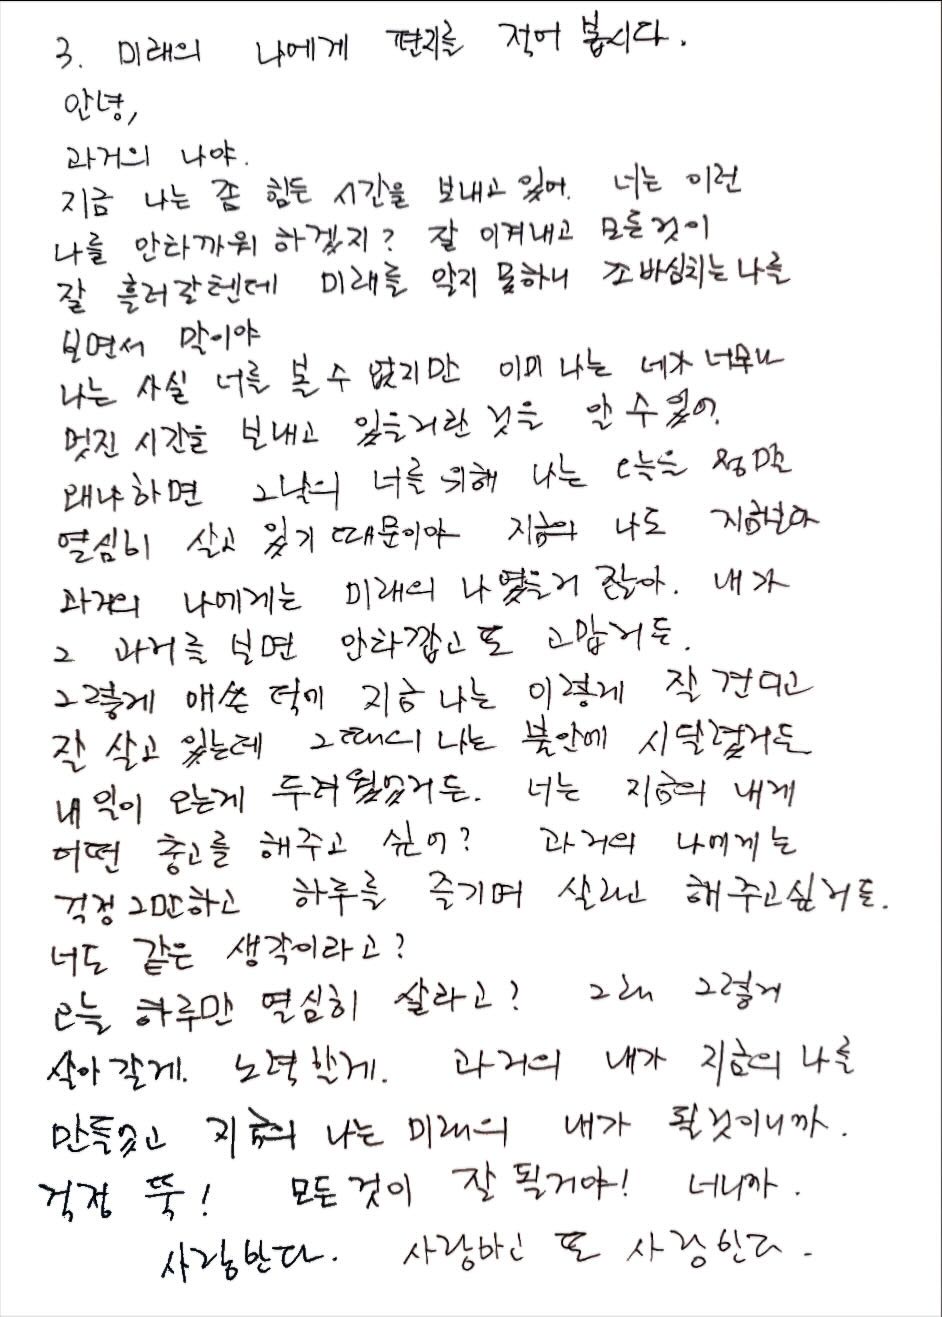 3. 미래의 나에게 편지를 적어 봅시다.
안녕,
과거의 나야.
지금 나는 좀 힘든 시간을 보내고 있어. 너는 이런
나를 안타까워 하겠지? 잘 이겨내고 모든것이
잘 흘러갈텐데 미래를 알지 못하니 조바심치는 나를
보면서 말이야
나는 사실 너를 볼 수 없지만 이미 나는 네가 너무나
멋진 시간을 보내고 있을거란 것을 알 수 있어.
왜냐하면 그날의 너를 위해 나는 오늘을 정말
열심히 살고 있기 때문이야 지금의 나도 지금보다
과거의 나에게는 미래의 나였을거 잖아. 내가
그 과거를 보면 안타깝고 또 고맙거든.
그렇게 애쓴 덕에 지금 나는 이렇게 잘 견디고
잘 살고 있는데 그때의 나는 불안에 시달렸거든
내일이 오는게 두려웠었거든. 너는 지금의 내게
어떤 충고를 해주고 싶어? 과거의 나에게는
걱정 그만하고 하루를 즐기며 살라고 해주고싶거든.
너도 같은 생각이라고?
오늘 하루만 열심히 살라고? 그래 그렇게
살아갈게. 노력할게. 과거의 내가 지금의 나를
만들었고 지금의 나는 미래의 내가 될것이니까.
걱정 뚝! 모든 것이 잘 될거야! 너니까.
사랑한다. 사랑하고 또 사랑한다.